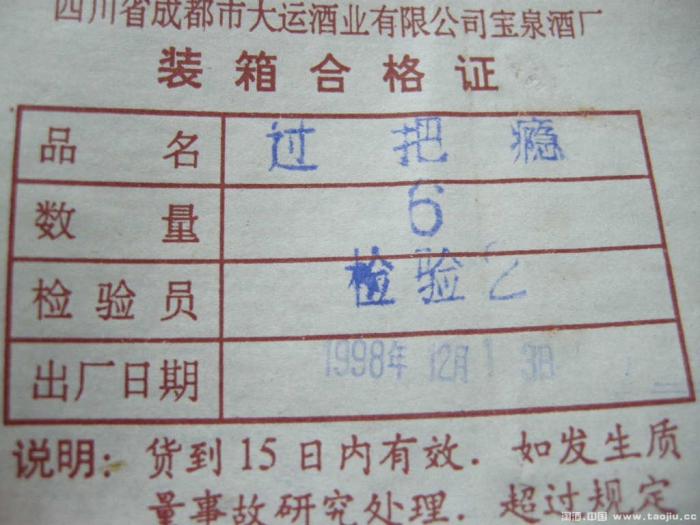 四川省成都市大运酒业有限公司宝泉酒厂
装箱合格证
品名 过把瘾
数量 6
检验员 检验2
出厂日期 1998年12月13日
说明: 货到15日内有效. 如发生质
量事故研究处理. 超过规定
淘酒.中国 www.taojiu.cc